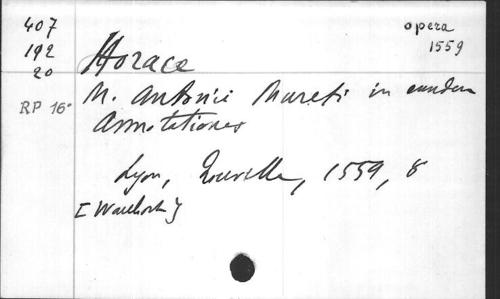 407
192
20
RP 16°
opera
1559
Horace
M. Antonii Mureti in eundem
Annotationes
Lyon, Rouille, 1559, 8